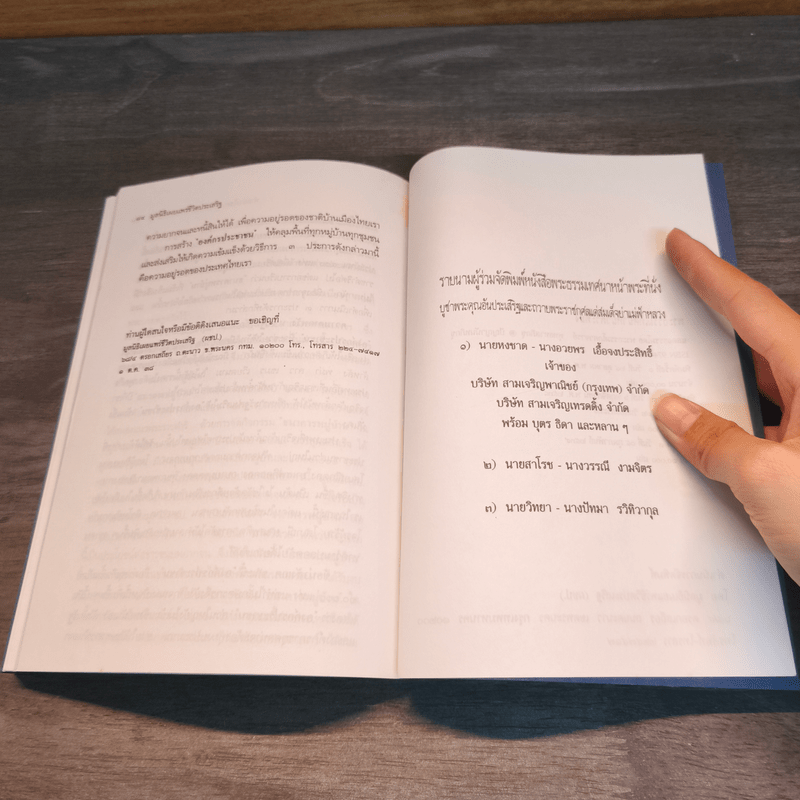 ๑๘ มูลนิธิเผยแพร่ชีวิตประเสริฐ
ความยากจนและหนี้สินให้ได้ เพื่อความอยู่รอดของชาติบ้านเมืองไทยเรา
การสร้าง "องค์กรประชาชน" ให้คลุมพื้นที่ทุกหมู่บ้านทุกชุมชน
และส่งเสริมให้เกิดความเข้มแข็งด้วยวิธีการ ๓ ประการดังกล่าวมานี้
คือความอยู่รอดของประเทศไทยเรา
ท่านผู้ใดสนใจหรือมีข้อติติงเสนอแนะ ขอเชิญที่
มูลนิธิเผยแพร่ชีวิตประเสริฐ (ผชป.)
๖๘/๔ ตรอกเสถียร ถ.ตะนาว ข.พระนคร กทม. ๑๐๒๐๐ โทร., โทรสาร ๒๒๔-๗๔๑๗
๑ ต.ค. ๓๘
รายนามผู้ร่วมจัดพิมพ์หนังสือพระธรรมเทศนาหน้าพระที่นั่ง
บูชาพระคุณอันประเสริฐและถวายพระราชกุศลแด่สมเด็จย่าแม่ฟ้าหลวง
๑) นายหงชาด - นางอวยพร เอื้อจงประสิทธิ์
เจ้าของ
บริษัท สามเจริญพาณิชย์ (กรุงเทพ) จำกัด
บริษัท สามเจริญเทรดดิ้ง จำกัด
พร้อม บุตร ธิดา และหลาน ๆ
๒) นายสาโรช - นางวรรณี งามจิตร
๓) นายวิทยา - นางปัทมา รวิทิวากุล